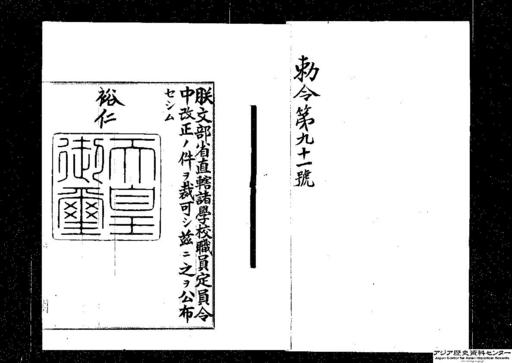 勅令第九十一號
朕文部省直轄諸學校職員定員令
中改正ノ件ヲ裁可シ茲ニ之ヲ公布
セシム
裕仁
天皇
御璽
アジア歴史資料センター
Japan Center for Asian Historical Records